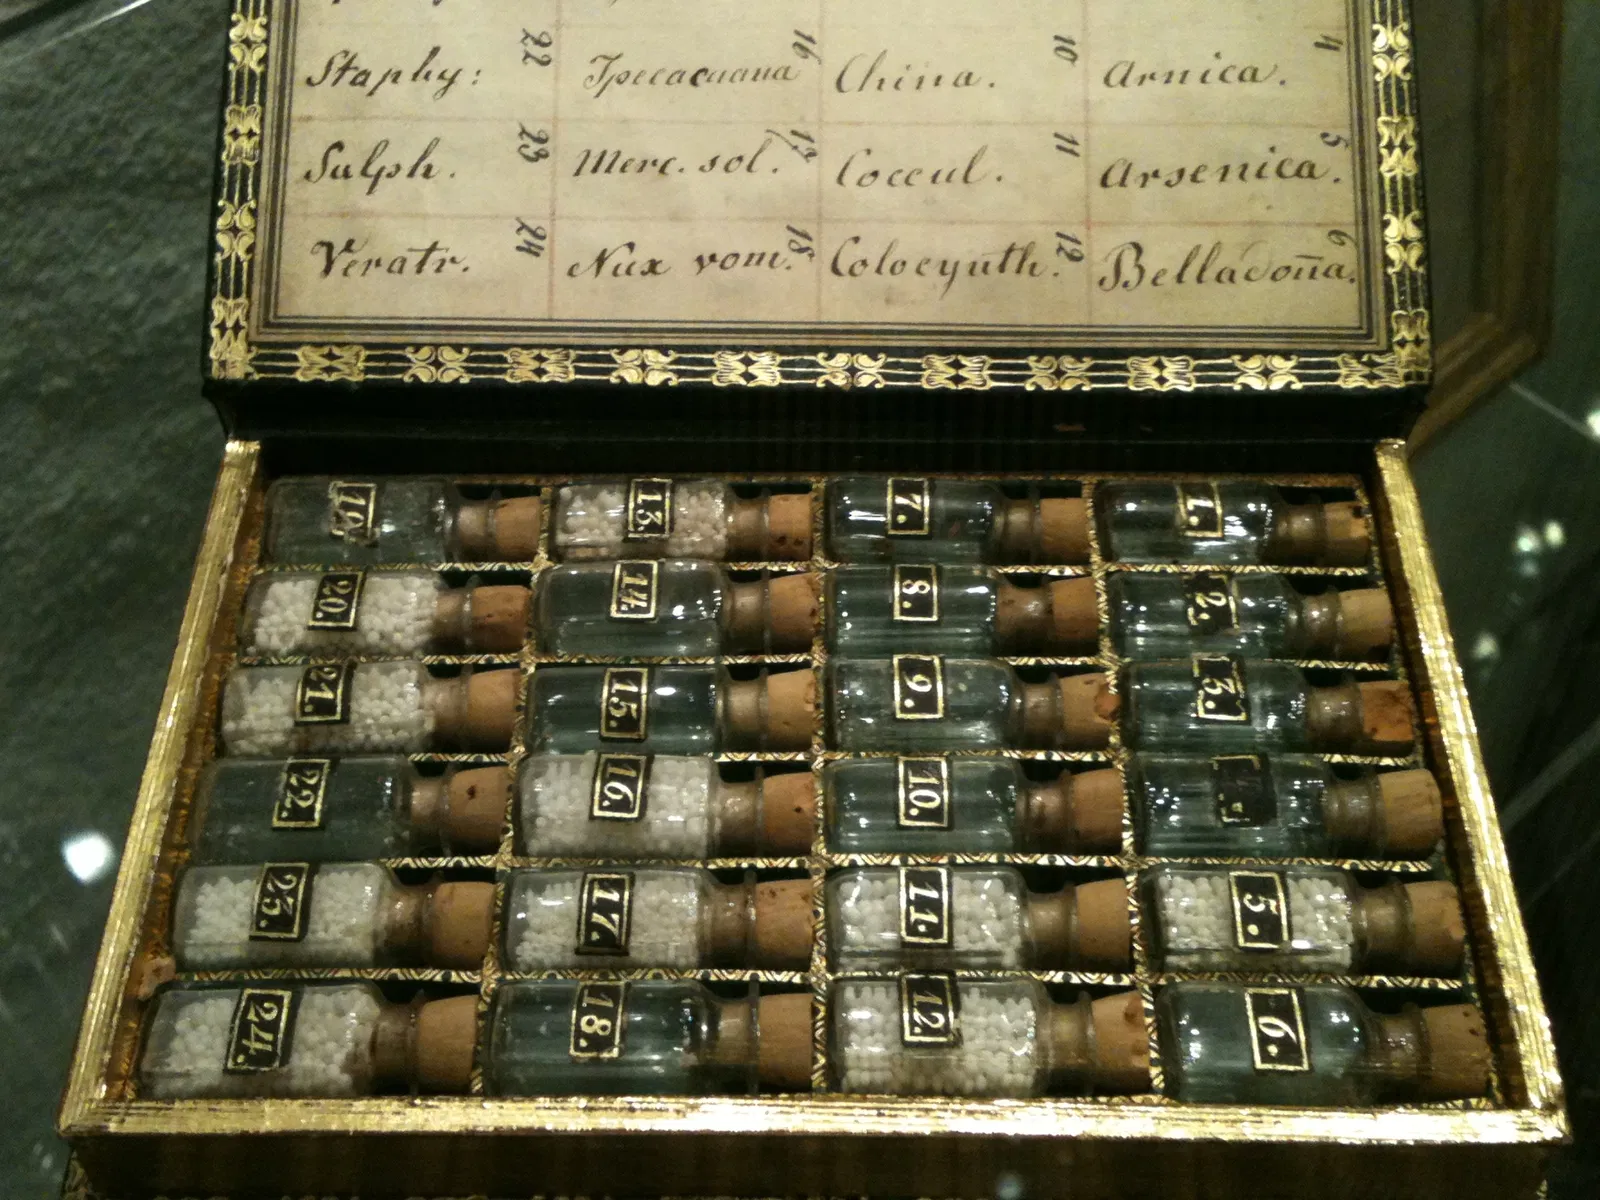 22 16 10 4
Staphy: Ipecacuana China. Arnica.
23 17 11 5
Sulph. Merc. sol. Coccul. Arsenica.
24 18 12 6
Veratr. Nux vom. Colocynth. Belladoña.
19. 13. 7. 1.
20. 14. 8. 2.
21. 15. 9. 3.
22. 16. 10.
23. 17. 11. 5.
24. 18. 12. 6.